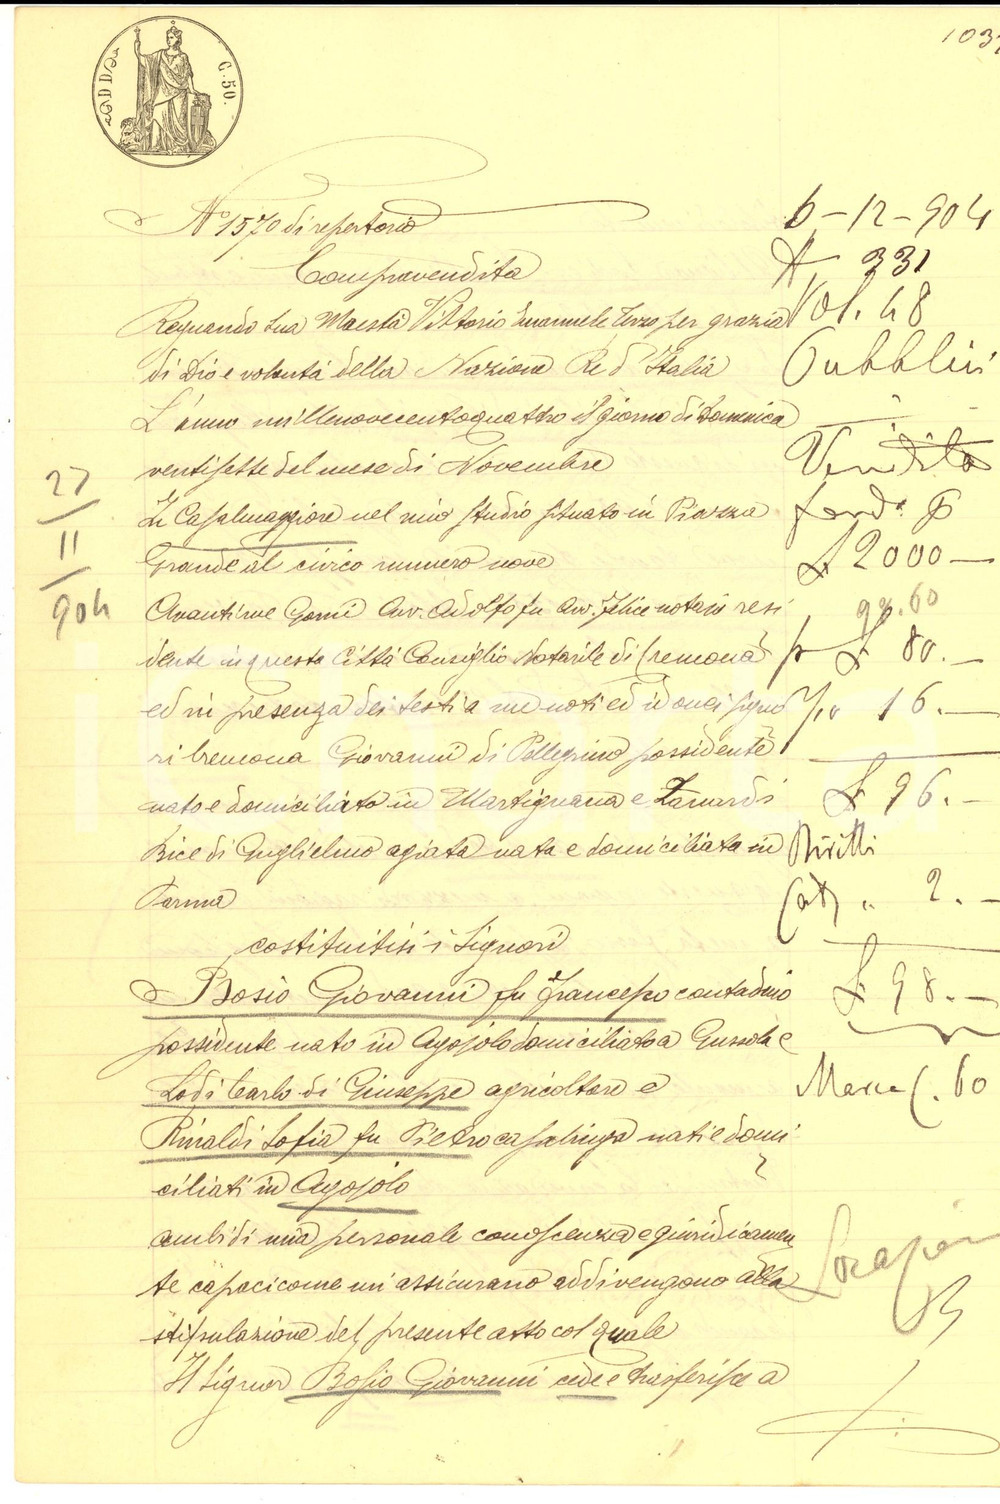 C. 50.
103
N° 1570 di repertorio
Compravendita
Regnando Sua Maestà Vittorio Emanuele Terzo per grazia
di Dio e volontà della Nazione Re d'Italia
L'anno millenovecentoquattro il giorno di Domenica
ventisette del mese di Novembre
In Casalmaggiore nel mio studio situato in Piazza
Grande al civico numero nove
Avanti me Gorni Avv. Adolfo fu Avv. Felice notaio resi
dente in questa Città Consiglio Notarile di Cremona
ed in presenza dei testi a me noti ed idonei signo
ri Cremona Giovanni di Pellegrino possidente
nato e domiciliato in Martignana e
Bice di Guglielmo agiata nata e domiciliata in
Parma
costituitisi i Signori
Bosio Giovanni fu Francesco contadino
possidente nato in Agojolo domiciliato a Gussola e
Lodi Carlo di Giuseppe agricoltore e
Rinaldi Sofia fu Pietro casalinga nati e domi
ciliati in Agojolo
ambi di mia personale conoscenza e giuridicamen
te capaci come mi assicurano addivengono alla
stipulazione del presente atto col quale
Il Signor Bosio Giovanni cede e trasferisce a
27
11
904
6-12-904
N 331
Vol. 48
Pubblici
Vendita
£ 2000 —
£ 80. —
16. —
£ 96. —
Diritti
Cat. " 2. —
£ 98. —
Marca C. 60